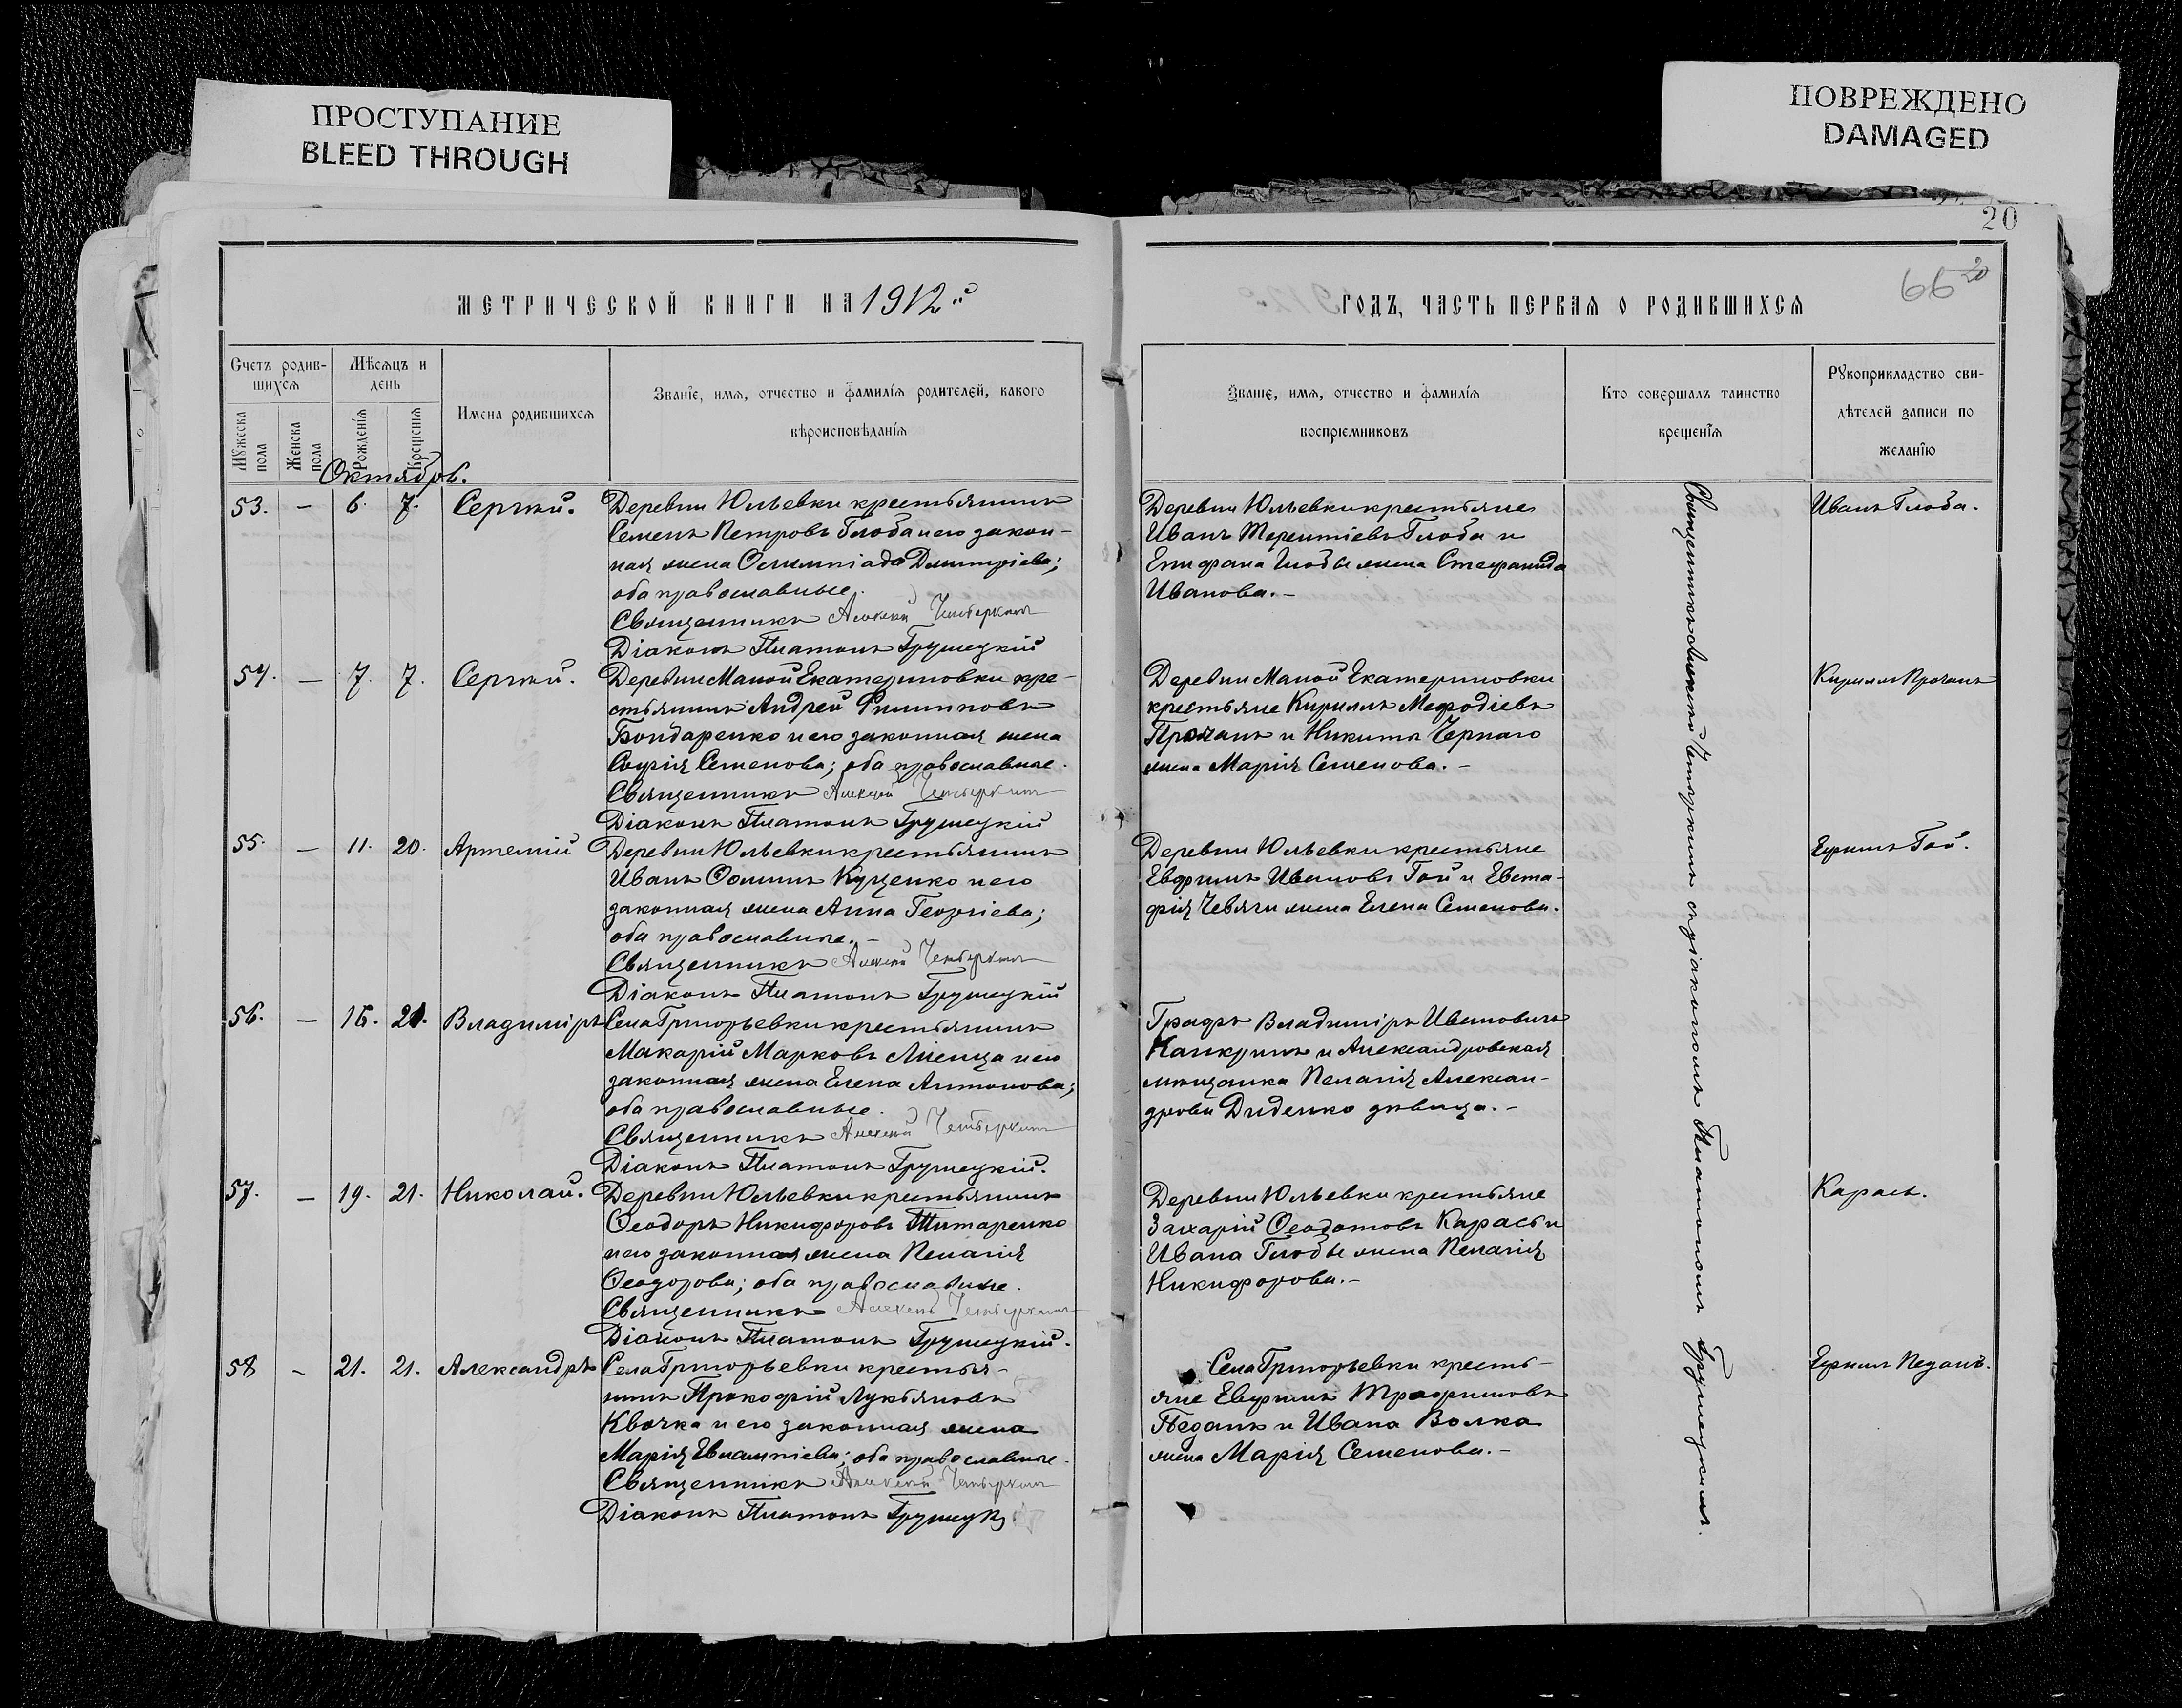 ПРОСТУПАНИЕ
BLEED THROUGH
ПОВРЕЖДЕНО
DAMAGED
20
66 20
МЕТРИЧЕСКОЙ КНИГИ НА 1912й
Счетъ родив-
шихся
Мѣсяцъ и
день
Мужеска
пола
Женска
пола
Рожденія
Крещенія
Имена родившихся
Званіе, имя, отчество и фамилія родителей, какого
вѣроисповѣданія
Октябрь.
53. — 6. 7. Сергѣй.
Деревни Юльевки крестьянинъ
Семенъ Петровъ Глоба и его закон-
ная жена Олимпіада Димитріева;
оба православные.
Священникъ Алексѣй Четверкинъ
Діаконъ Платонъ Грушецкій
54. — 7. 7. Сергѣй.
Деревни Малой Екатериновки кре-
стьянинъ Андрей Филипповъ
Бондаренко и его законная жена
Софія Семенова; оба православные.
Священникъ Алексѣй Четверкинъ
Діаконъ Платонъ Грушецкій
55. — 11. 20. Артемій
Деревни Юльевки крестьянинъ
Иванъ Ѳоминъ Куценко и его
законная жена Анна Георгіева;
оба православные.—
Священникъ Алексѣй Четверкинъ
Діаконъ Платонъ Грушецкій
56. — 16. 21. Владиміръ
Села Григорьевки крестьянинъ
Макарій Марковъ и его
законная жена Елена Антонова;
оба православные.
Священникъ Алексѣй Четверкинъ
Діаконъ Платонъ Грушецкій.
57. — 19. 21. Николай.
Деревни Юльевки крестьянинъ
Ѳеодоръ Никифоровъ Титаренко
и его законная жена Пелагія
Ѳеодорова; оба православные.
Священникъ Алексѣй Четверкинъ
Діаконъ Платонъ Грушецкій.
58 — 21. 21. Александръ
Села Григорьевки крестья-
нинъ Прокофій Лукьяновъ
Квочка и его законная жена
Марія Евлампіева; оба православные.
Священникъ Алексѣй Четверкинъ
Діаконъ Платонъ Грушецк
ГОДЪ, ЧАСТЬ ПЕРВАЯ О РОДИВШИХСЯ
Званіе, имя, отчество и фамилія
воспріемниковъ
Кто совершалъ таинство
крещенія
Рукоприкладство сви-
дѣтелей записи по
желанію
Деревни Юльевки крестьяне
Иванъ Терентіевъ Глоба и
Епифана Глобы жена Стефанида
Иванова.—
Иванъ Глоба.
Деревни Малой Екатериновки
крестьяне Кириллъ Мефодіевъ
Прочанъ и Никиты Чернаго
жена Марія Семенова.—
Кириллъ Прочанъ
Деревни Юльевки крестьяне
Евфимъ Ивановъ Гой и Евста-
фія Чевяги жена Елена Семенова.
Ефимъ Гой.
Графъ Владиміръ Ивановичъ
Канкринъ и Александровская
мѣщанка Пелагія Алексан-
дрова Диденко дѣвица.—
Деревни Юльевки крестьяне
Захарій Ѳеодотовъ Карась и
Ивана Глобы жена Пелагія
Никифорова.—
Карась.
Села Григорьевки кресть-
яне Евфимъ Трофимовъ
Педанъ и Ивана Волка
жена Марія Семенова.—
Ефимъ Педанъ.
Священникъ Алексѣй Четверкинъ съ діакономъ Платономъ Грушецкимъ.